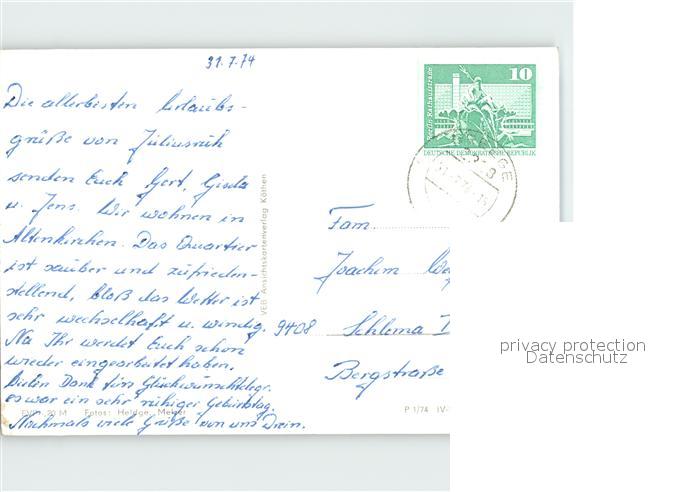 31.7.74
Die allerbesten Urlaubs-
grüße von Juliusruh
senden Euch Gert, Gisela
u. Jens. Wir wohnen in
Altenkirchen. Das Quartier
ist sauber und zufrieden-
stellend, bloß das Wetter ist
sehr wechselhaft u. windig.
Na Ihr werdet Euch schon
wieder eingearbeitet haben.
Vielen Dank fürs Glückwunschtelegr.
es war ein sehr ruhiger Geburtstag.
Nochmals viele Grüße von uns Drein.
20 M Fotos: Heldge, Melzer
VEB Ansichtskartenverlag Köthen
10
Berlin-Rathausstraße
DEUTSCHE DEMOKRATISCHE REPUBLIK
Fam.
Joachim
9408 Schlema
Bergstraße
P 1/74 IV-
privacy protection
Datenschutz